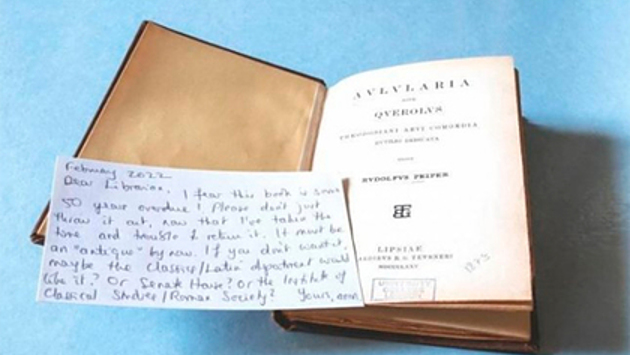 February 2022
Dear Librarian. I fear this book is some
50 years overdue! Please don't just
throw it out, now that I've taken the
time and trouble to return it. It must be
an "antique" by now. If you don't want it,
maybe the Classics/Latin department would
like it? Or Senate House? Or the Institute of
Classical Studies/Roman Society? Yours, anon.
AVLVLARIA
SIVE
QVEROLVS
THEODOSIANI AEVI COMOEDIA
RVTILIO DEDICATA
EDIDIT
RVDOLFVS PEIPER
LIPSIAE
IN AEDIBVS B. G. TEVBNERI
MDCCCLXXV
1875
UNIVERSITY
COLLEGE